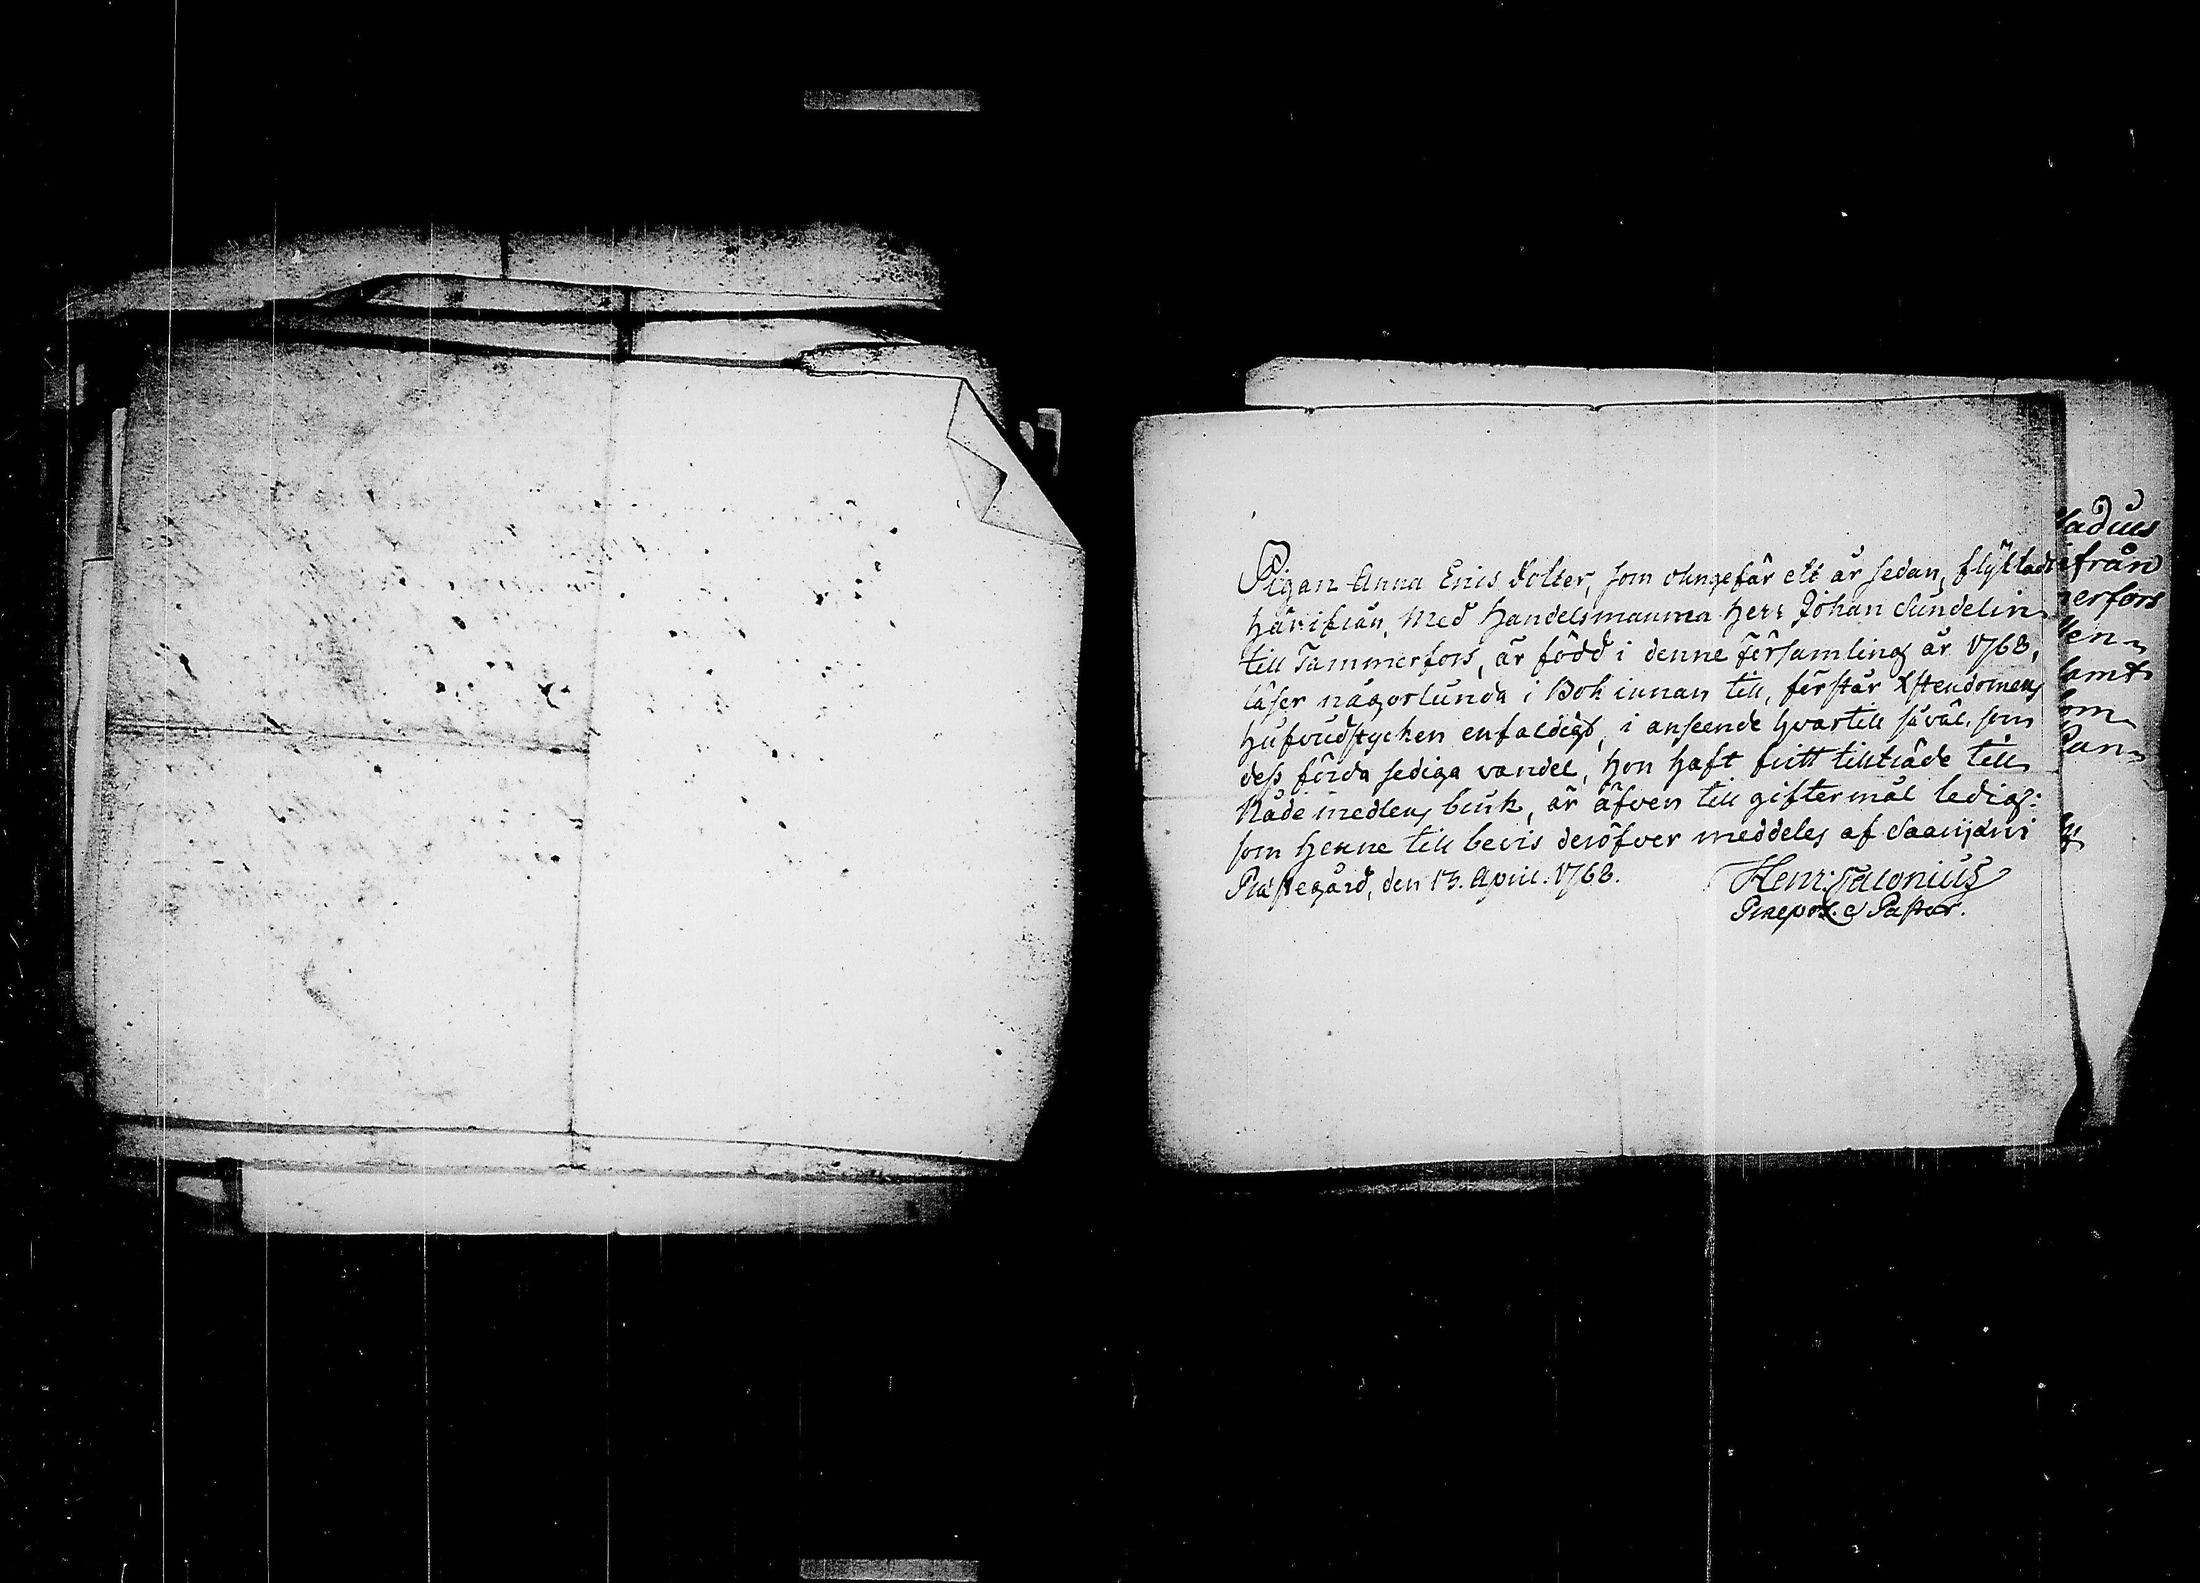 Pigan Anna Erics dotter, som ohngefär ett år sedan, flyttade
härifrån, med Handelsmannen Herr Johan Sundelin
till Tammerfors, är född i denne församling år 1768,
läser någorlunda i Bok innan till, förstår Xstendomens
Hufvudstycken enfaldigt, i anseende hvartill såväl som
dess förda sediga vandel, hon haft fritt tillträde till
Nåde medlens bruk, är äfven till giftermål ledig:
som henne till bevis deröfver meddeles af Saarijärvi
Prästegård, den 13. April. 1768.
Henr: Salonius
Praepos. & Pastor.
ladius
ifrån
nerfors
len
samt
om